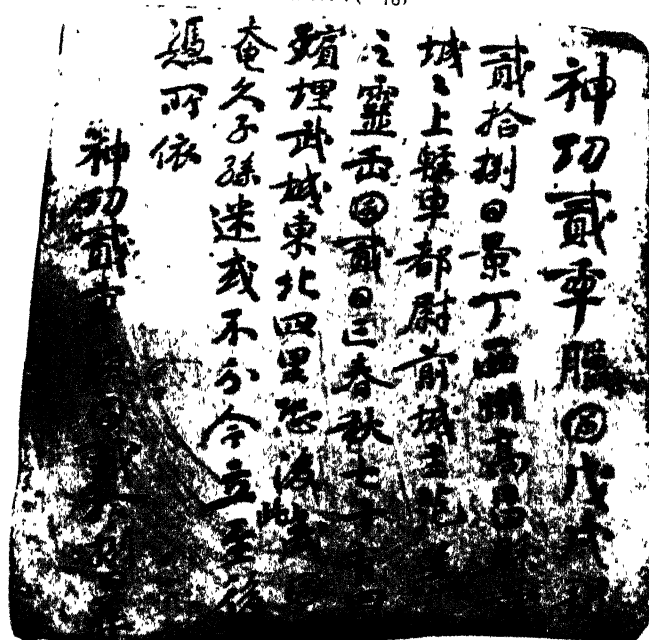 神功貳𠡦臘囝戊戌
貳拾捌日景丁西州高昌
城之上輕車都尉前城主范
之靈𠙺囝貳日亡春秋七十
殯埋武城東北四里恐後
奄久子孫迷或不分今立至後
憑所依
神功貳